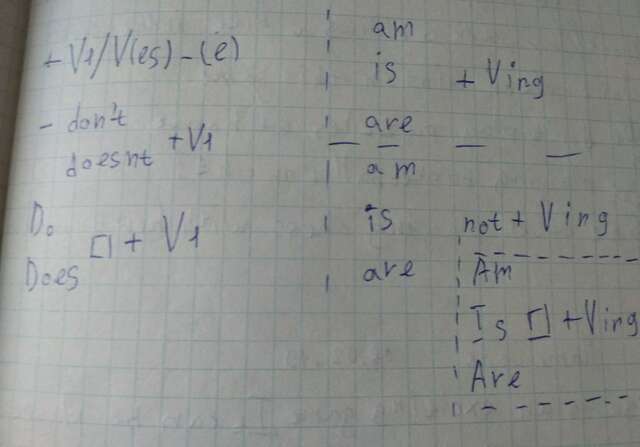 + V1/V(es) - (e)
- don't
doesnt + V1
Do
Does □ + V1
am
is + Ving
are
am
is not + Ving
are
Am
Is □ + Ving
Are